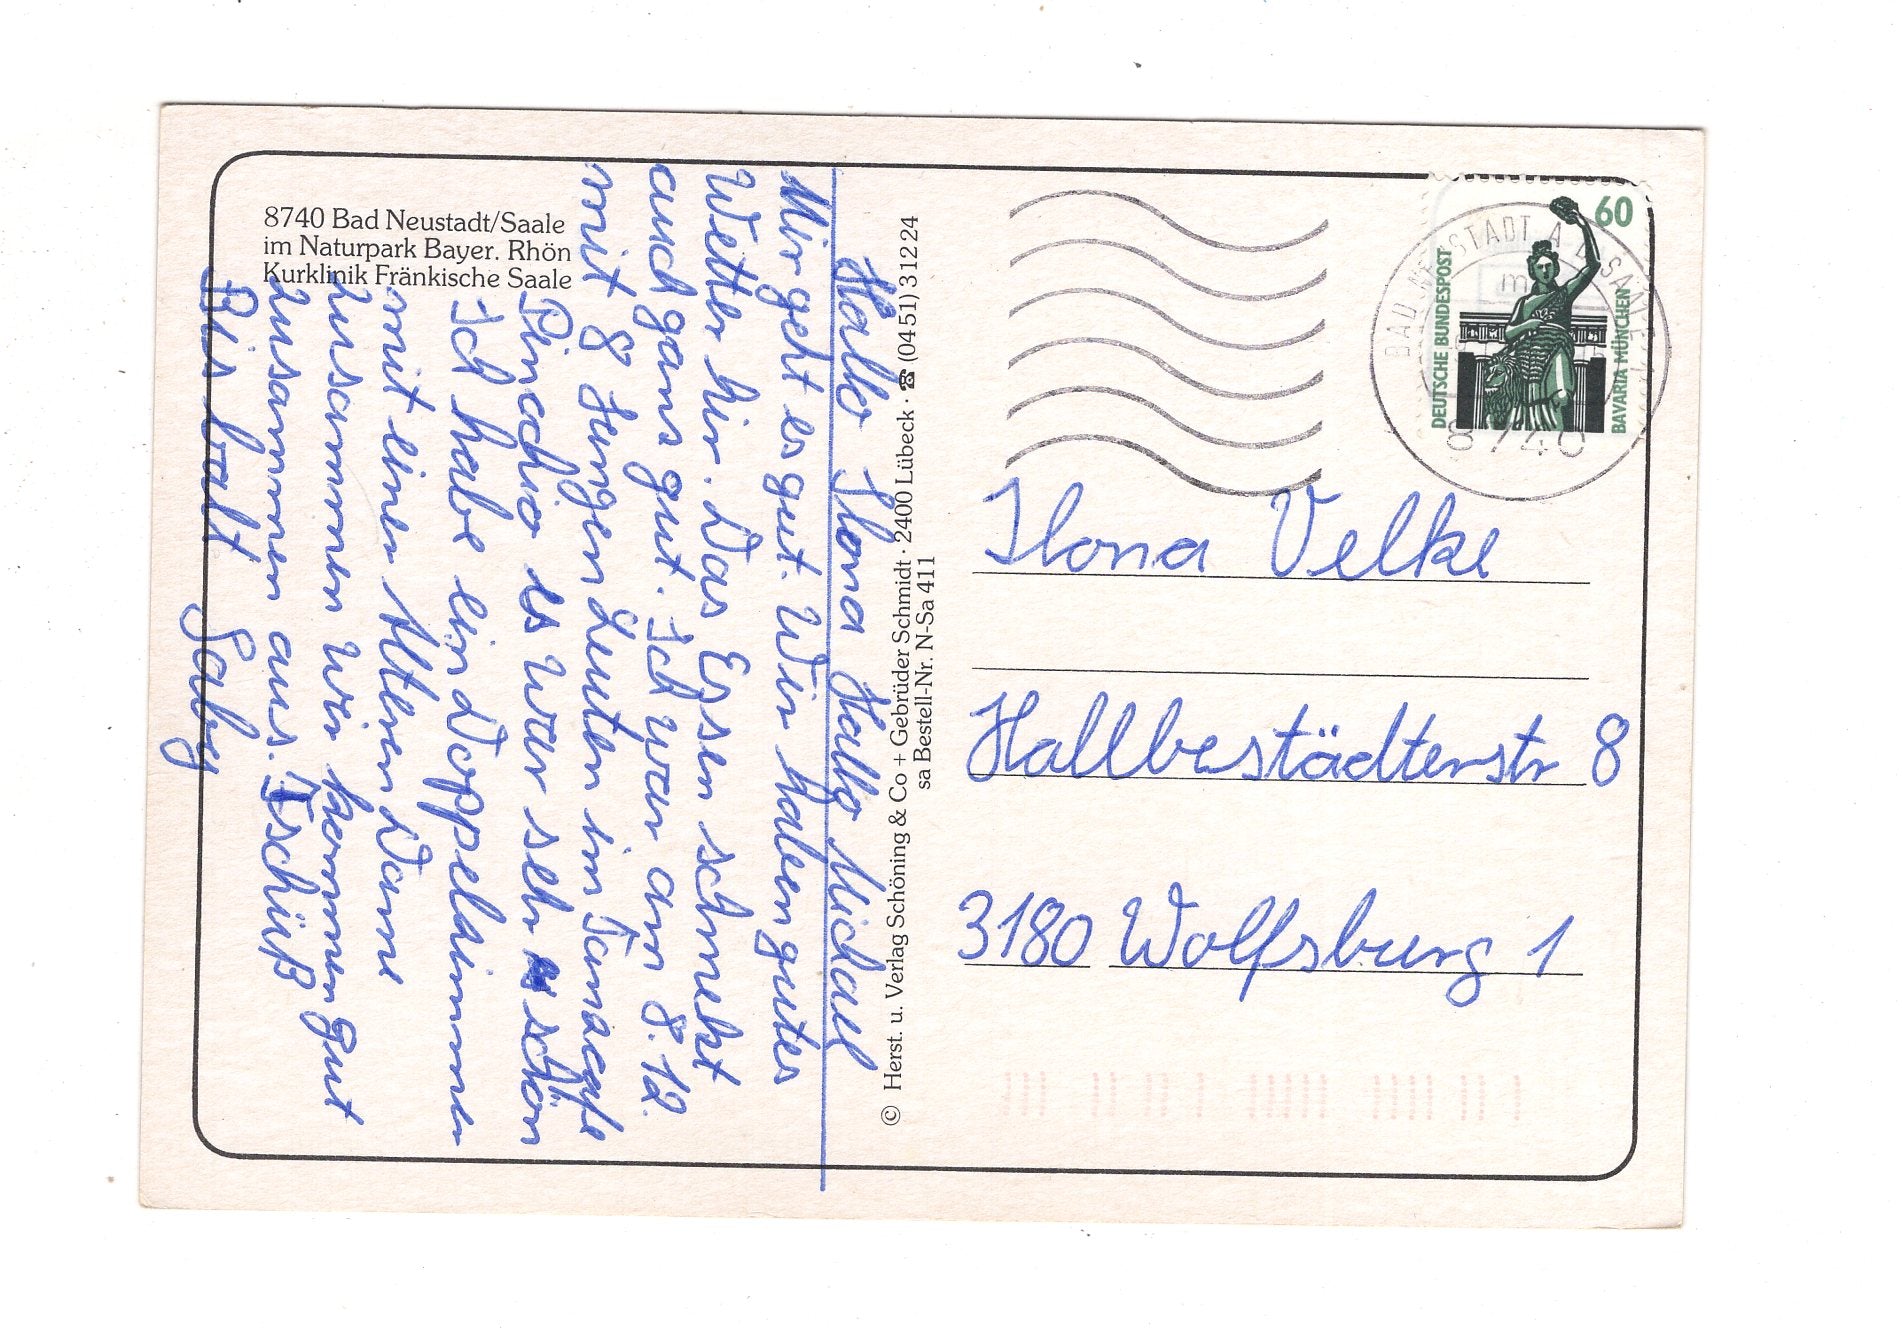 8740 Bad Neustadt/Saale
im Naturpark Bayer. Rhön
Kurklinik Fränkische Saale
Hallo Ilona Hallo Michael
Mir geht es gut. Wir haben gutes
Wetter hir. Das Essen schmekt
auch gans gut. Ich war am 8.12.
mit 8 Jungen Leuten im
Pinachio es war sehr schön
Ich habe ein Doppelzimmer
mit einer Alteren Dame
zusammen wir kommen gut
zusammen aus. Tschüß
Bis balt Gaby
© Herst. u. Verlag Schöning & Co + Gebrüder Schmidt · 2400 Lübeck · ☎ (0451) 31224
sa Bestell-Nr. N-Sa 411
60
DEUTSCHE BUNDESPOST
BAVARIA MÜNCHEN
BAD NEUSTADT A D SAALE
8740
Ilona Velke
Hallbestädterstr 8
3180 Wolfsburg 1